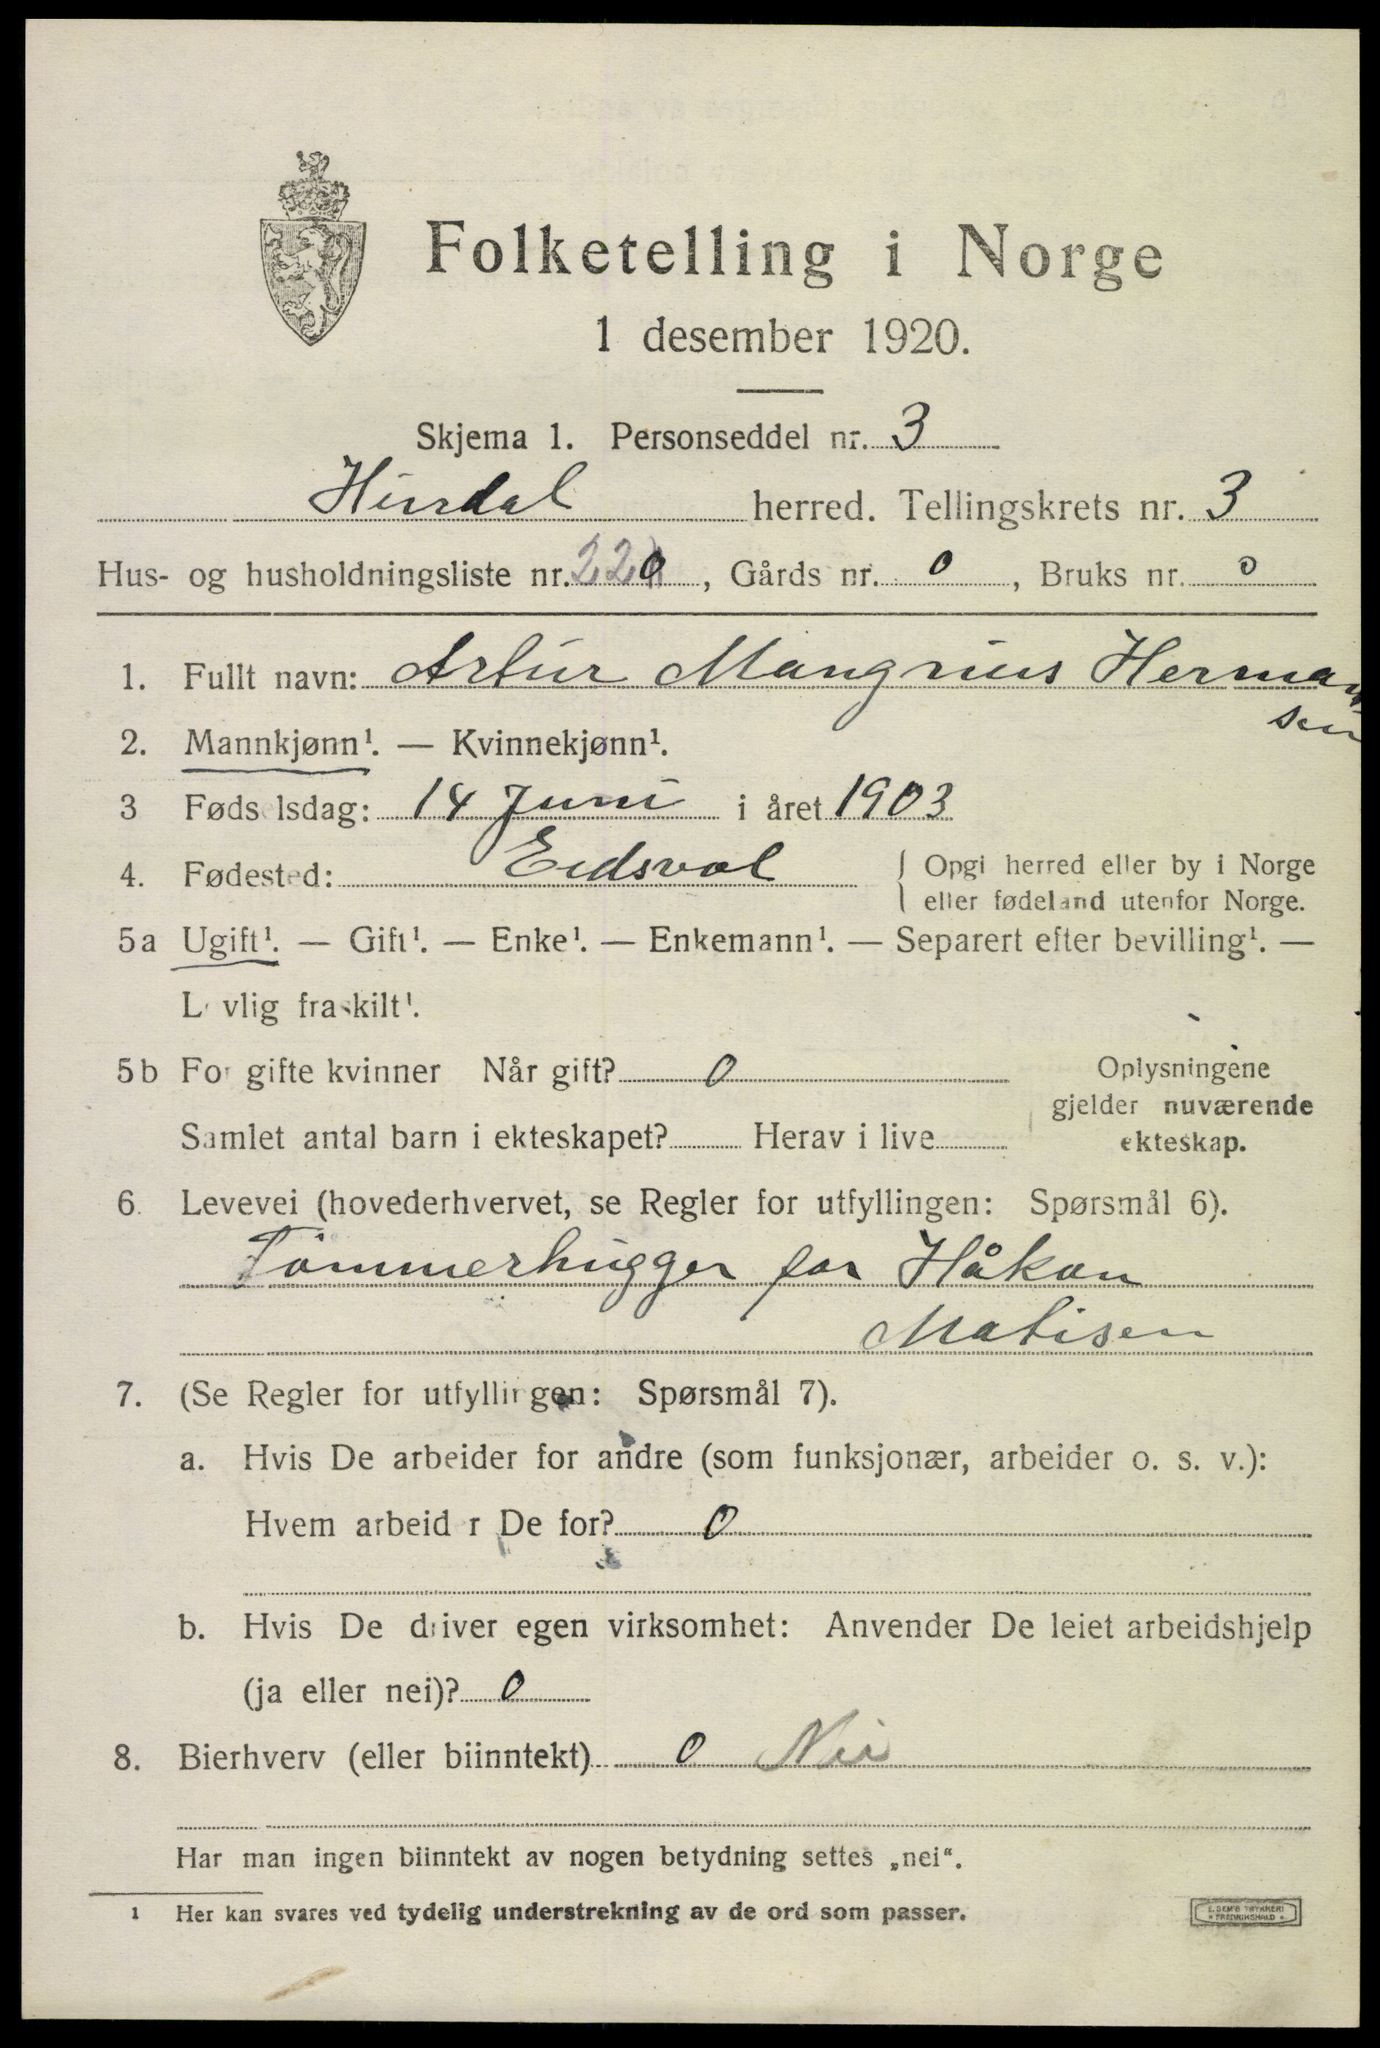 Folketelling i Norge
1 desember 1920.
Skjema 1. Personseddel nr. 3
Hurdal herred. Tellingskrets nr. 3
Hus- og husholdningsliste nr. 22 0, Gårds nr. 0, Bruks nr. 0
1. Fullt navn: Artur Mangnius Herman
sen
2. Mannkjønn¹. — Kvinnekjønn¹.
3 Føds lsdag: 14 Juni i året 1903
4. Fødested: Eidsvol { Opgi herred eller by i Norge
eller fødeland utenfor Norge.
5a Ugift¹. — Gift¹. — Enke¹. — Enkemann¹. — Separert efter bevilling¹. —
L vlig fraskilt¹.
5b For gifte kvinner Når gift? 0 Oplysningene
gjelder nuværende
Samlet antal barn i ekteskapet? Herav i live ekteskap.
6. Levevei (hovederhvervet, se Regler for utfyllingen: Spørsmål 6).
Tömmerhugger for Håkon
Matisen
7. (Se Regler for utfyllingen: Spørsmål 7).
a. Hvis De arbeider for andre (som funksjonær, arbeider o. s. v.):
Hvem arbeid r De for? 0
b. Hvis De driver egen virksomhet: Anvender De leiet arbeidshjelp
(ja eller nei)? 0
8. Bierhverv (eller biinntekt) 0 Nei
Har man ingen biinntekt av nogen betydning settes „nei“.
1 Her kan svares ved tydelig understrekning av de ord som passer.
E. SEM'S TRYKKERI
* FREDRIKSHALD *